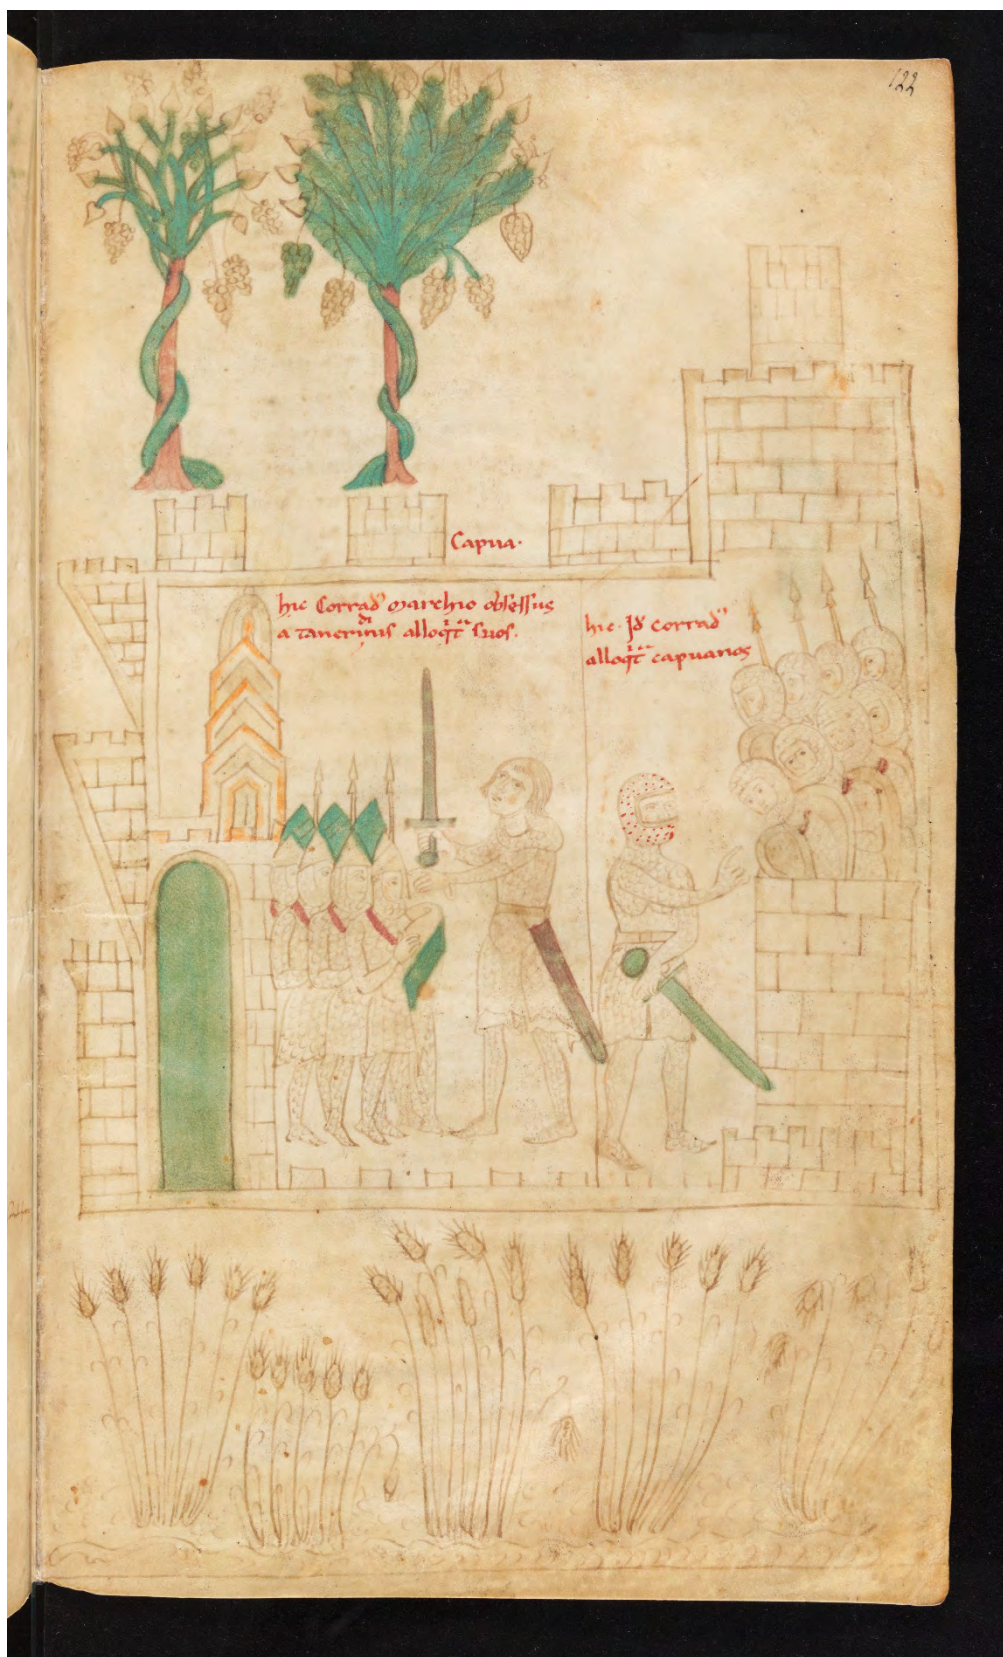 122
Capua.
hic Corrad⁹ marchio obsessus
a tancridinis alloqͥtᵃ suos.
hic. Id̄ corrad⁹
alloqͥtᵃ capuanos